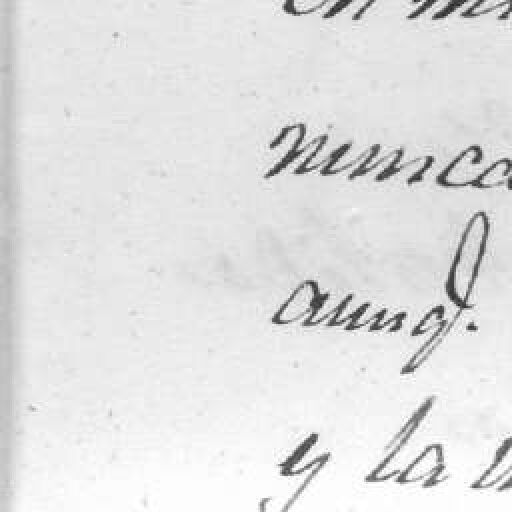 nunca
aunq.
y la